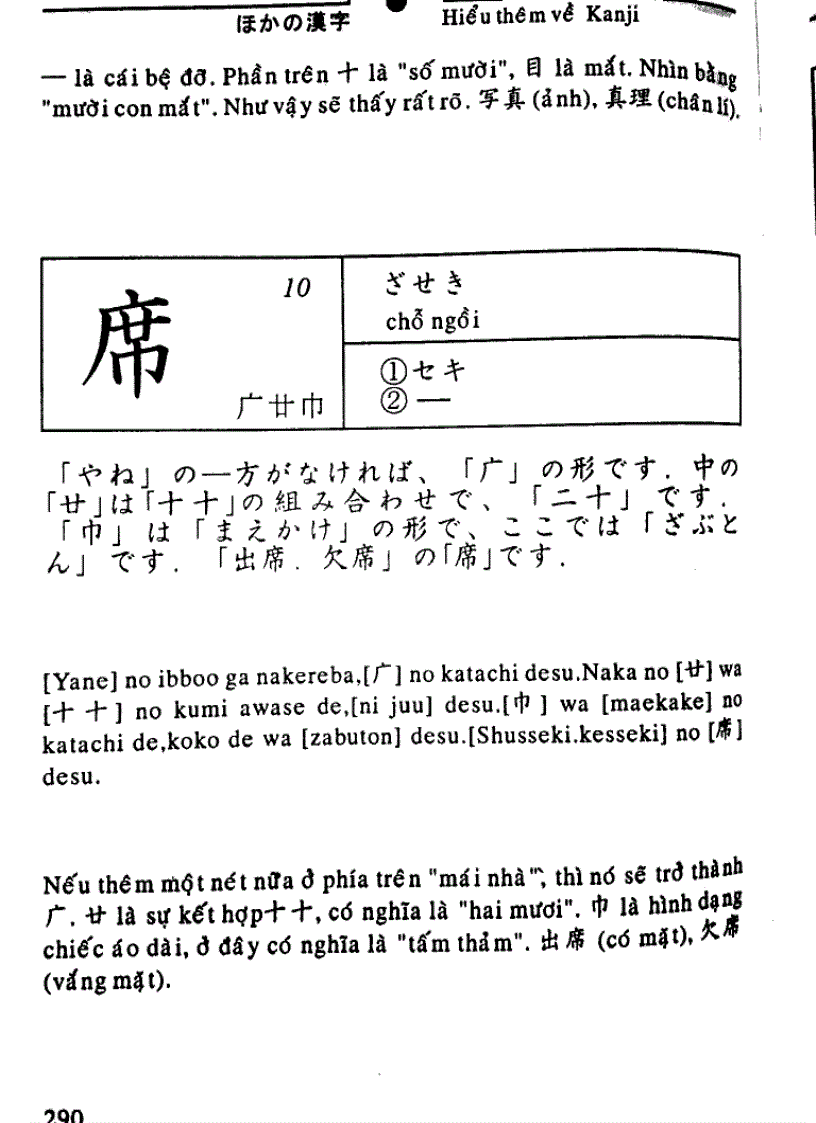 ほかの漢字
Hiểu thêm về Kanji
一 là cái bệ đỡ. Phần trên 十 là "số mười", 目 là mắt. Nhìn bằng
"mười con mắt". Như vậy sẽ thấy rất rõ. 写真 (ảnh), 真理 (chân lí).
席
10
广廿巾
ざせき
chỗ ngồi
①セキ
②一
「やね」の一方がなければ、「广」の形です. 中の
「廿」は「十十」の組み合わせで、「二十」です.
「巾」は「まえかけ」の形で、ここでは「ざぶと
ん」です. 「出席. 欠席」の「席」です.
[Yane] no ibboo ga nakereba,[广] no katachi desu.Naka no [廿] wa
[十 十] no kumi awase de,[ni juu] desu.[巾] wa [maekake] no
katachi de,koko de wa [zabuton] desu.[Shusseki.kesseki] no [席]
desu.
Nếu thêm một nét nữa ở phía trên "mái nhà", thì nó sẽ trở thành
广. 廿 là sự kết hợp十十, có nghĩa là "hai mươi". 巾 là hình dạng
chiếc áo dài, ở đây có nghĩa là "tấm thảm". 出席 (có mặt), 欠席
(vắng mặt).
290